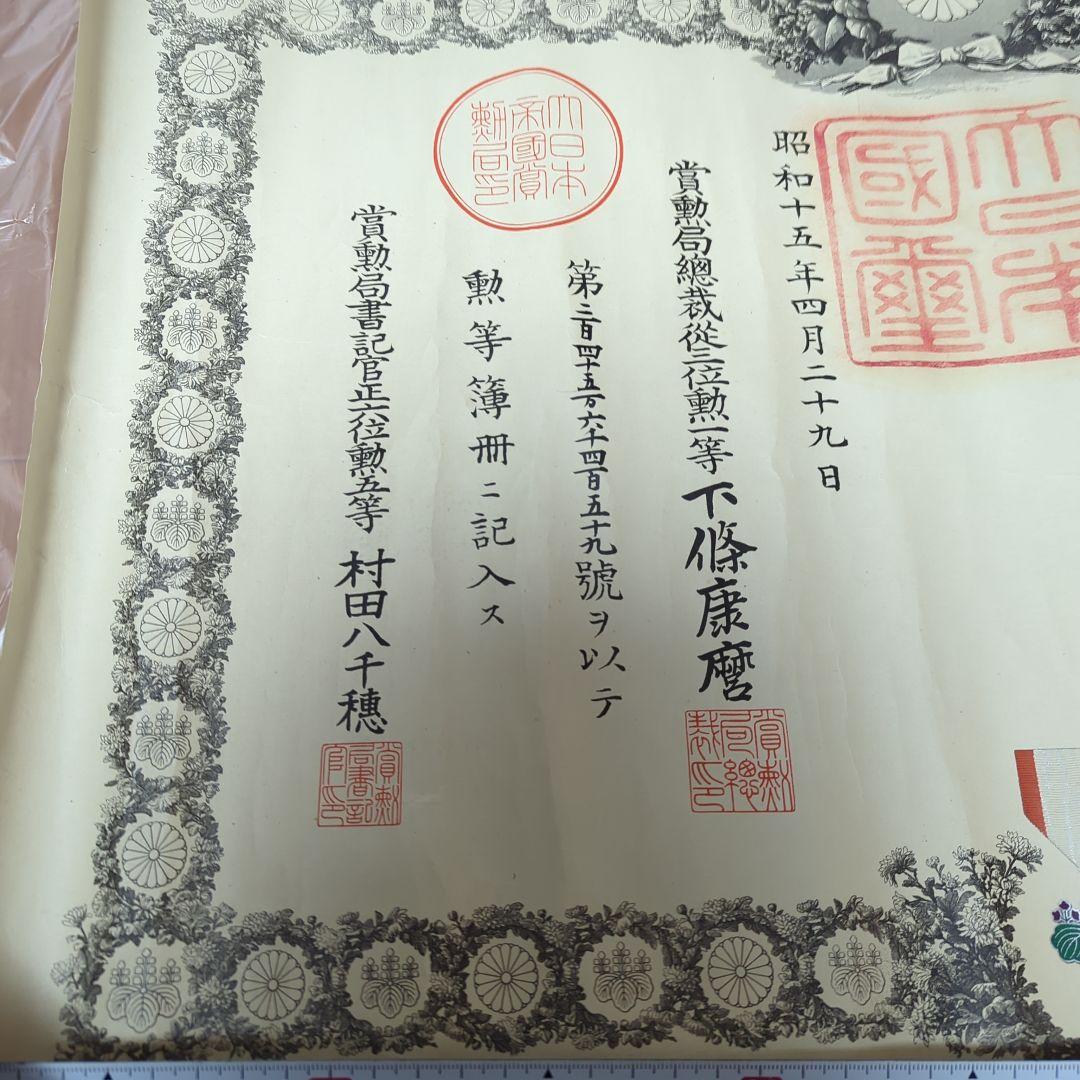 大日本
國璽
昭和十五年四月二十九日
賞勲局總裁從三位勲一等下條康麿
賞勲
局總
裁印
大日本
帝國賞
勲局印
第二百四十五万六千四百五十九號ヲ以テ
勲等簿冊ニ記入ス
賞勲局書記官正六位勲五等村田八千穂
賞勲
局書記
官印